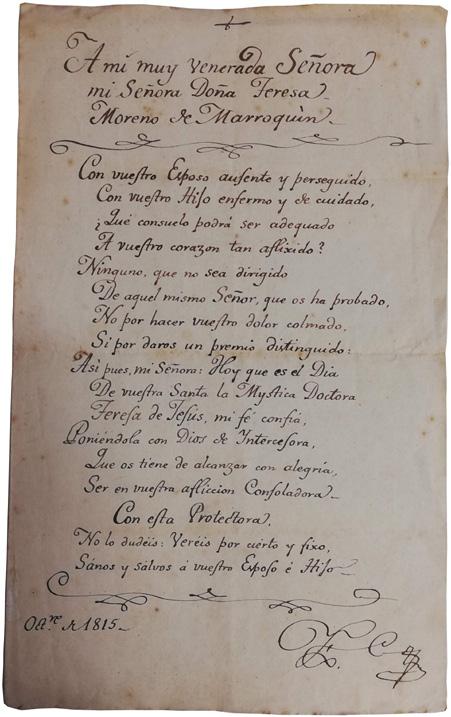 A mi muy venerada Señora
mi Señora Doña Teresa
Moreno de Marroquin.
Con vuestro Esposo ausente y perseguido,
Con vuestro Hijo enfermo y de cuidado,
¿Qué consuelo podrá ser adequado
A vuestro corazon tan aflixido?
Ninguno, que no sea dirigido
De aquel mismo Señor, que os ha probado,
No por hacer vuestro dolor colmado,
Si por daros un premio distinguido:
Asi pues, mi Señora: Hoy que es el Dia
De vuestra Santa la Mystica Doctora
Teresa de Jesús, mi fé confia,
Poniéndola con Dios de Intercesora,
Que os tiene de alcanzar con alegría,
Ser en vuestra afliccion Consoladora_
Con esta Protectora,
No lo dudéis: Veréis por cierto y fixo,
Sános y sálvos á vuestro Esposo é Hijo_
Oct.re 1815_